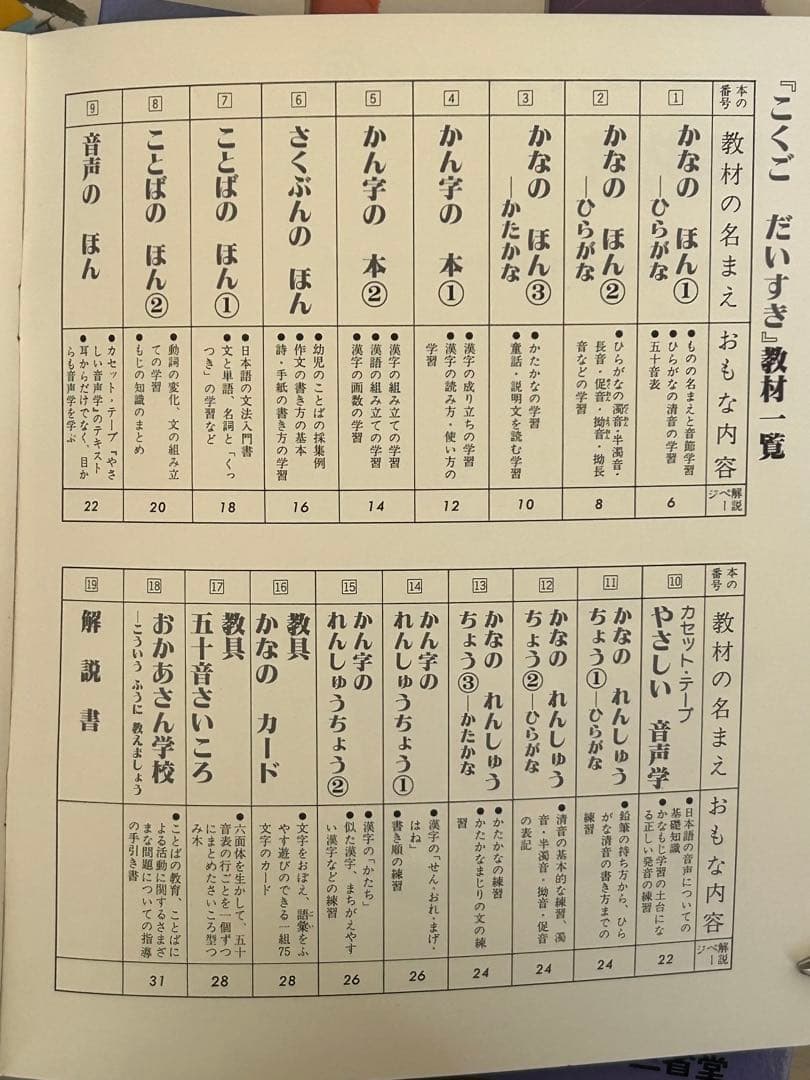 『こくご だいすき』教材一覧
本の番号
教材の名まえ
おもな内容
解説ページ
1
かなの ほん①
―ひらがな
●ものの名まえと音節学習
●ひらがなの清音の学習
●五十音表
6
2
かなの ほん②
―ひらがな
●ひらがなの濁音・半濁音・
長音・促音・拗音・拗長
音などの学習
8
3
かなの ほん③
―かたかな
●かたかなの学習
●童話・説明文を読む学習
10
4
かん字の 本①
●漢字の成り立ちの学習
●漢字の読み方・使い方の
学習
12
5
かん字の 本②
●漢字の組み立ての学習
●漢語の組み立ての学習
●漢字の画数の学習
14
6
さくぶんの ほん
●幼児のことばの採集例
●作文の書き方の基本
●詩・手紙の書き方の学習
16
7
ことばの ほん①
●日本語の文法入門書
●文と単語、名詞と「くっ
つき」の学習など
18
8
ことばの ほん②
●動詞の変化、文の組み立
ての学習
●もじの知識のまとめ
20
9
音声の ほん
●カセット・テープ『やさ
しい音声学』のテキスト
●耳からだけでなく、目か
らも音声学を学ぶ
22
本の番号
教材の名まえ
おもな内容
解説ページ
10
カセット・テープ
やさしい 音声学
●日本語の音声についての
基礎知識
●かなもじ学習の土台にな
る正しい発音の練習
22
11
かなの れんしゅう
ちょう①―ひらがな
●鉛筆の持ち方から、ひら
がな清音の書き方までの
練習
24
12
かなの れんしゅう
ちょう②―ひらがな
●清音の基本的な練習、濁
音・半濁音・拗音・促音
の表記
24
13
かなの れんしゅう
ちょう③―かたかな
●かたかなの練習
●かたかなまじりの文の練
習
24
14
かん字の
れんしゅうちょう①
●漢字の「せん・おれ・まげ・
はね」
●書き順の練習
26
15
かん字の
れんしゅうちょう②
●漢字の「かたち」
●似た漢字、まちがえやす
い漢字などの練習
26
16
教具
かなの カード
●文字をおぼえ、語彙をふ
やす遊びのできる一組75
文字のカード
28
17
教具
五十音さいころ
●六面体を生かして、五十
音表の行ごとを一個ずつ
にまとめたさいころ型つ
み木
28
18
おかあさん学校
―こういう ふうに 教えましょう
●ことばの教育、ことばに
よる活動に関するさまざ
まな問題についての指導
の手引き書
31
19
解説書
三省堂